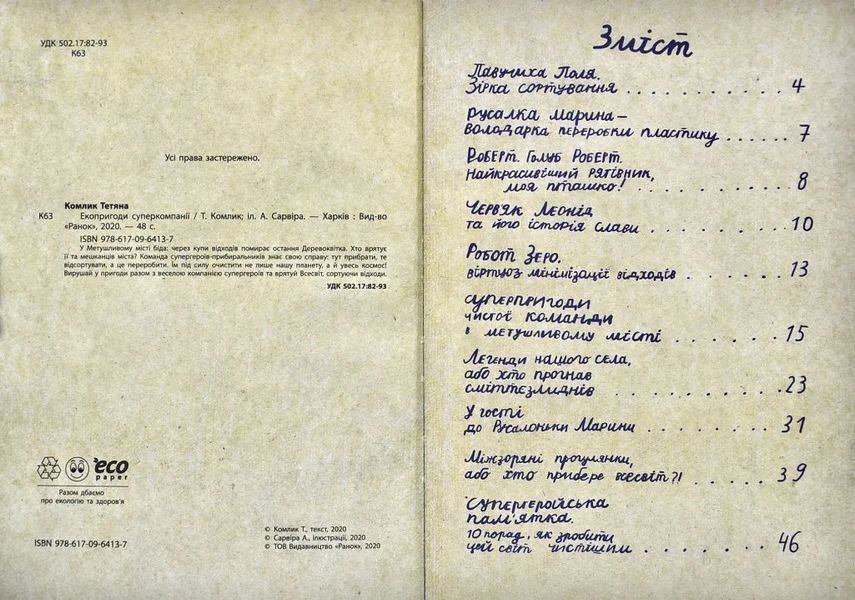 УДК 502.17:82-93
К63
Усі права застережено.
Комлик Тетяна
К63 Екопригоди суперкомпанії / Т. Комлик; іл. А. Сарвіра. — Харків : Вид-во
«Ранок», 2020. — 48 с.
ISBN 978-617-09-6413-7
У Метушливому місті біда: через купи відходів помирає остання Деревоквітка. Хто врятує
її та мешканців міста? Команда супергероїв-прибиральників знає свою справу: тут прибрати, те
відсортувати, а це переробити. Їм під силу очистити не лише нашу планету, а й увесь космос!
Вирушай у пригоди разом з веселою компанією супергероїв та врятуй Всесвіт, сортуючи відходи.
УДК 502.17:82-93
eco
paper
Разом дбаємо
про екологію та здоров'я
© Комлик Т., текст, 2020
© Сарвіра А., ілюстрації, 2020
© ТОВ Видавництво «Ранок», 2020
ISBN 978-617-09-6413-7
Зміст
Павучиха Поля.
Зірка сортування . . . . . . . . . . 4
Русалка Марина —
володарка переробки пластику . . . . . . 7
Роберт. Голуб Роберт.
Найкрасивіший рятівник,
моя пташко! . . . . . . . . . . 8
Черв'як Леонід
та його історія слави . . . . . . . . . 10
Робот Зеро.
Віртуоз мінімізації відходів . . . . . . . 13
Суперпригоди
чистої команди
в метушливому місті . . . . . . . . 15
Легенди нашого села,
або хто прогнав
сміттєзлиднів . . . . . . . . . . 23
У гості
до Русалоньки Марини . . . . . . . . 31
Міжзоряні прогулянки,
або хто прибере всесвіт?! . . . . . . 39
Супергеройська
пам'ятка.
10 порад, як зробити
цей світ чистішим . . . . . . . . 46